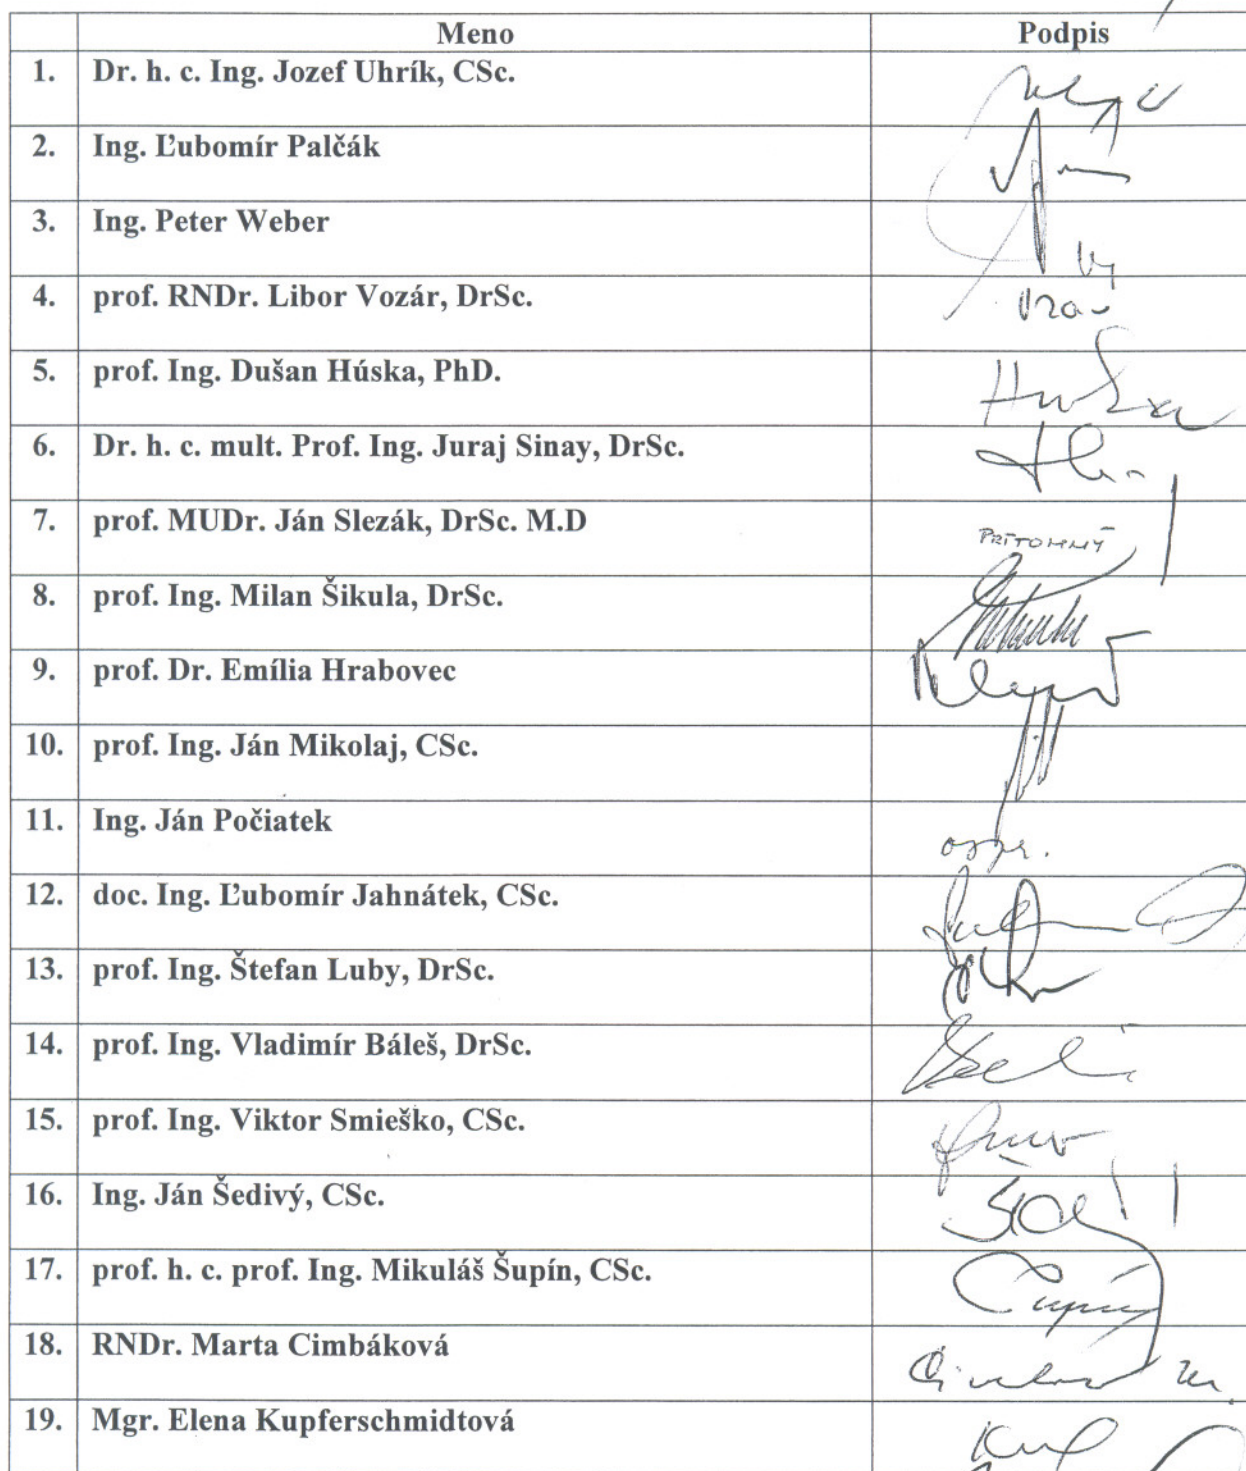 Meno Podpis
1. Dr. h. c. Ing. Jozef Uhrík, CSc.
2. Ing. Ľubomír Palčák
3. Ing. Peter Weber
4. prof. RNDr. Libor Vozár, DrSc.
5. prof. Ing. Dušan Húska, PhD.
6. Dr. h. c. mult. Prof. Ing. Juraj Sinay, DrSc.
7. prof. MUDr. Ján Slezák, DrSc. M.D PRÍTOMNÝ
8. prof. Ing. Milan Šikula, DrSc.
9. prof. Dr. Emília Hrabovec
10. prof. Ing. Ján Mikolaj, CSc.
11. Ing. Ján Počiatek
12. doc. Ing. Ľubomír Jahnátek, CSc.
13. prof. Ing. Štefan Luby, DrSc.
14. prof. Ing. Vladimír Báleš, DrSc.
15. prof. Ing. Viktor Smieško, CSc.
16. Ing. Ján Šedivý, CSc.
17. prof. h. c. prof. Ing. Mikuláš Šupín, CSc.
18. RNDr. Marta Cimbáková
19. Mgr. Elena Kupferschmidtová